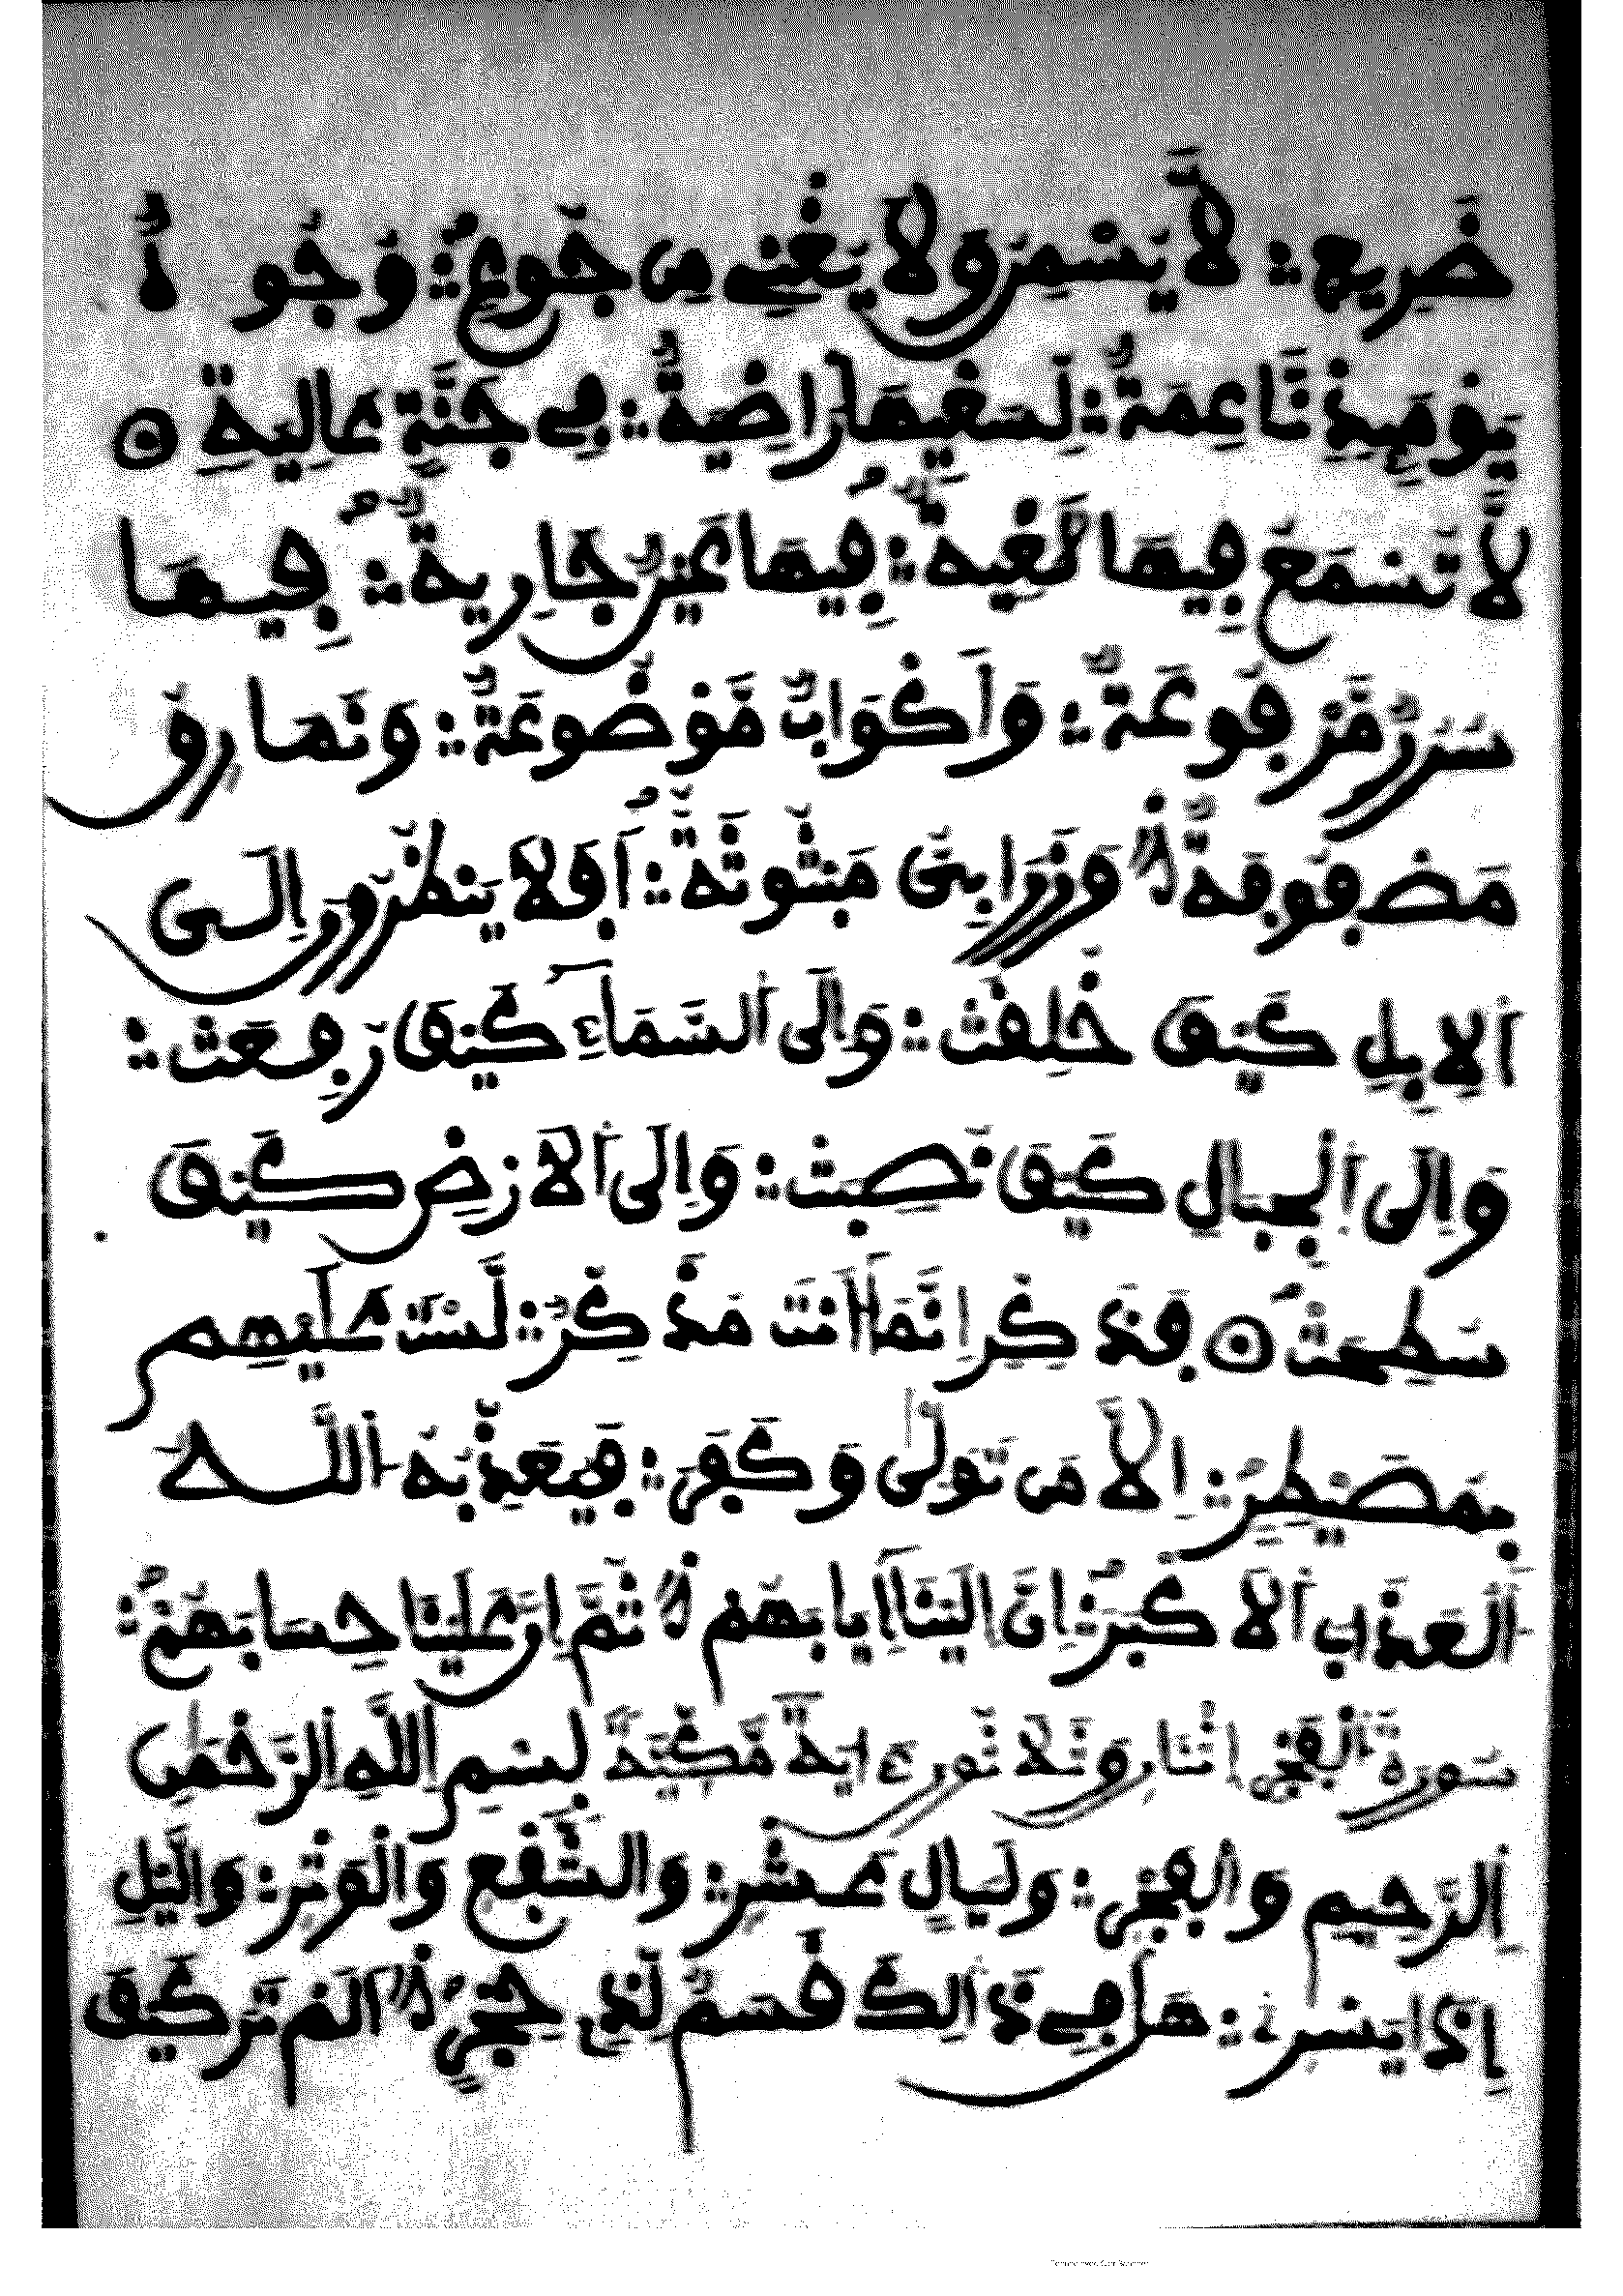 ضَرِيعٍ ۞ لَّا يُسْمِنُ وَلَا يُغْنِے مِن جُوعٍ ۞ وُجُو هٌ
يَوْمَئِذٍ نَّاعِمَةٌ ۞ لِّسَعْيِهَا رَاضِيَةٌ ۞ فِي جَنَّةٍ عَالِيَةٍ ۞
لَّا تُسْمَعُ فِيهَا لَٰغِيَةٌ ۞ فِيهَا عَيْنٌ جَارِيَةٌ ۞ فِيهَا
سُرُرٌ مَّرْفُوعَةٌ ۞ وَأَكْوَابٌ مَّوْضُوعَةٌ ۞ وَنَمَارِقُ
مَصْفُوفَةٌ ۞ وَزَرَابِيُّ مَبْثُوثَةٌ ۞ أَفَلَا يَنظُرُونَ إِلَى
اَلْإِبِلِ كَيْفَ خُلِقَتْ ۞ وَإِلَى اَلسَّمَاءِ كَيْفَ رُفِعَتْ ۞
وَإِلَى اَلْجِبَالِ كَيْفَ نُصِبَتْ ۞ وَإِلَى اَلْأَرْضِ كَيْفَ
سُطِحَتْ ۞ فَذَكِّرْ إِنَّمَا أَنتَ مُذَكِّرٌ ۞ لَّسْتَ عَلَيْهِم
بِمُصَيْطِرٍ ۞ إِلَّا مَن تَوَلَّىٰ وَكَفَرَ ۞ فَيُعَذِّبُهُ اللَّهُ
اَلْعَذَابَ اَلْأَكْبَرَ ۞ إِنَّ إِلَيْنَا إِيَابَهُمْ ۞ ثُمَّ إِنَّ عَلَيْنَا حِسَابَهُمْ ۞
سُورَةُ اَلْفَجْرِ اثنا وثلاثون ءاية مَّكِّيَّةٌ بِسْمِ اِللَّهِ اِلرَّحْمَٰنِ
اِلرَّحِيمِ وَالْفَجْرِ ۞ وَلَيَالٍ عَشْرٍ ۞ وَالشَّفْعِ وَالْوَتْرِ ۞ وَالَّيْلِ
إِذَا يَسْرِ ۞ هَلْ فِي ذَٰلِكَ قَسَمٌ لِّذِي حِجْرٍ ۞ أَلَمْ تَرَ كَيْفَ